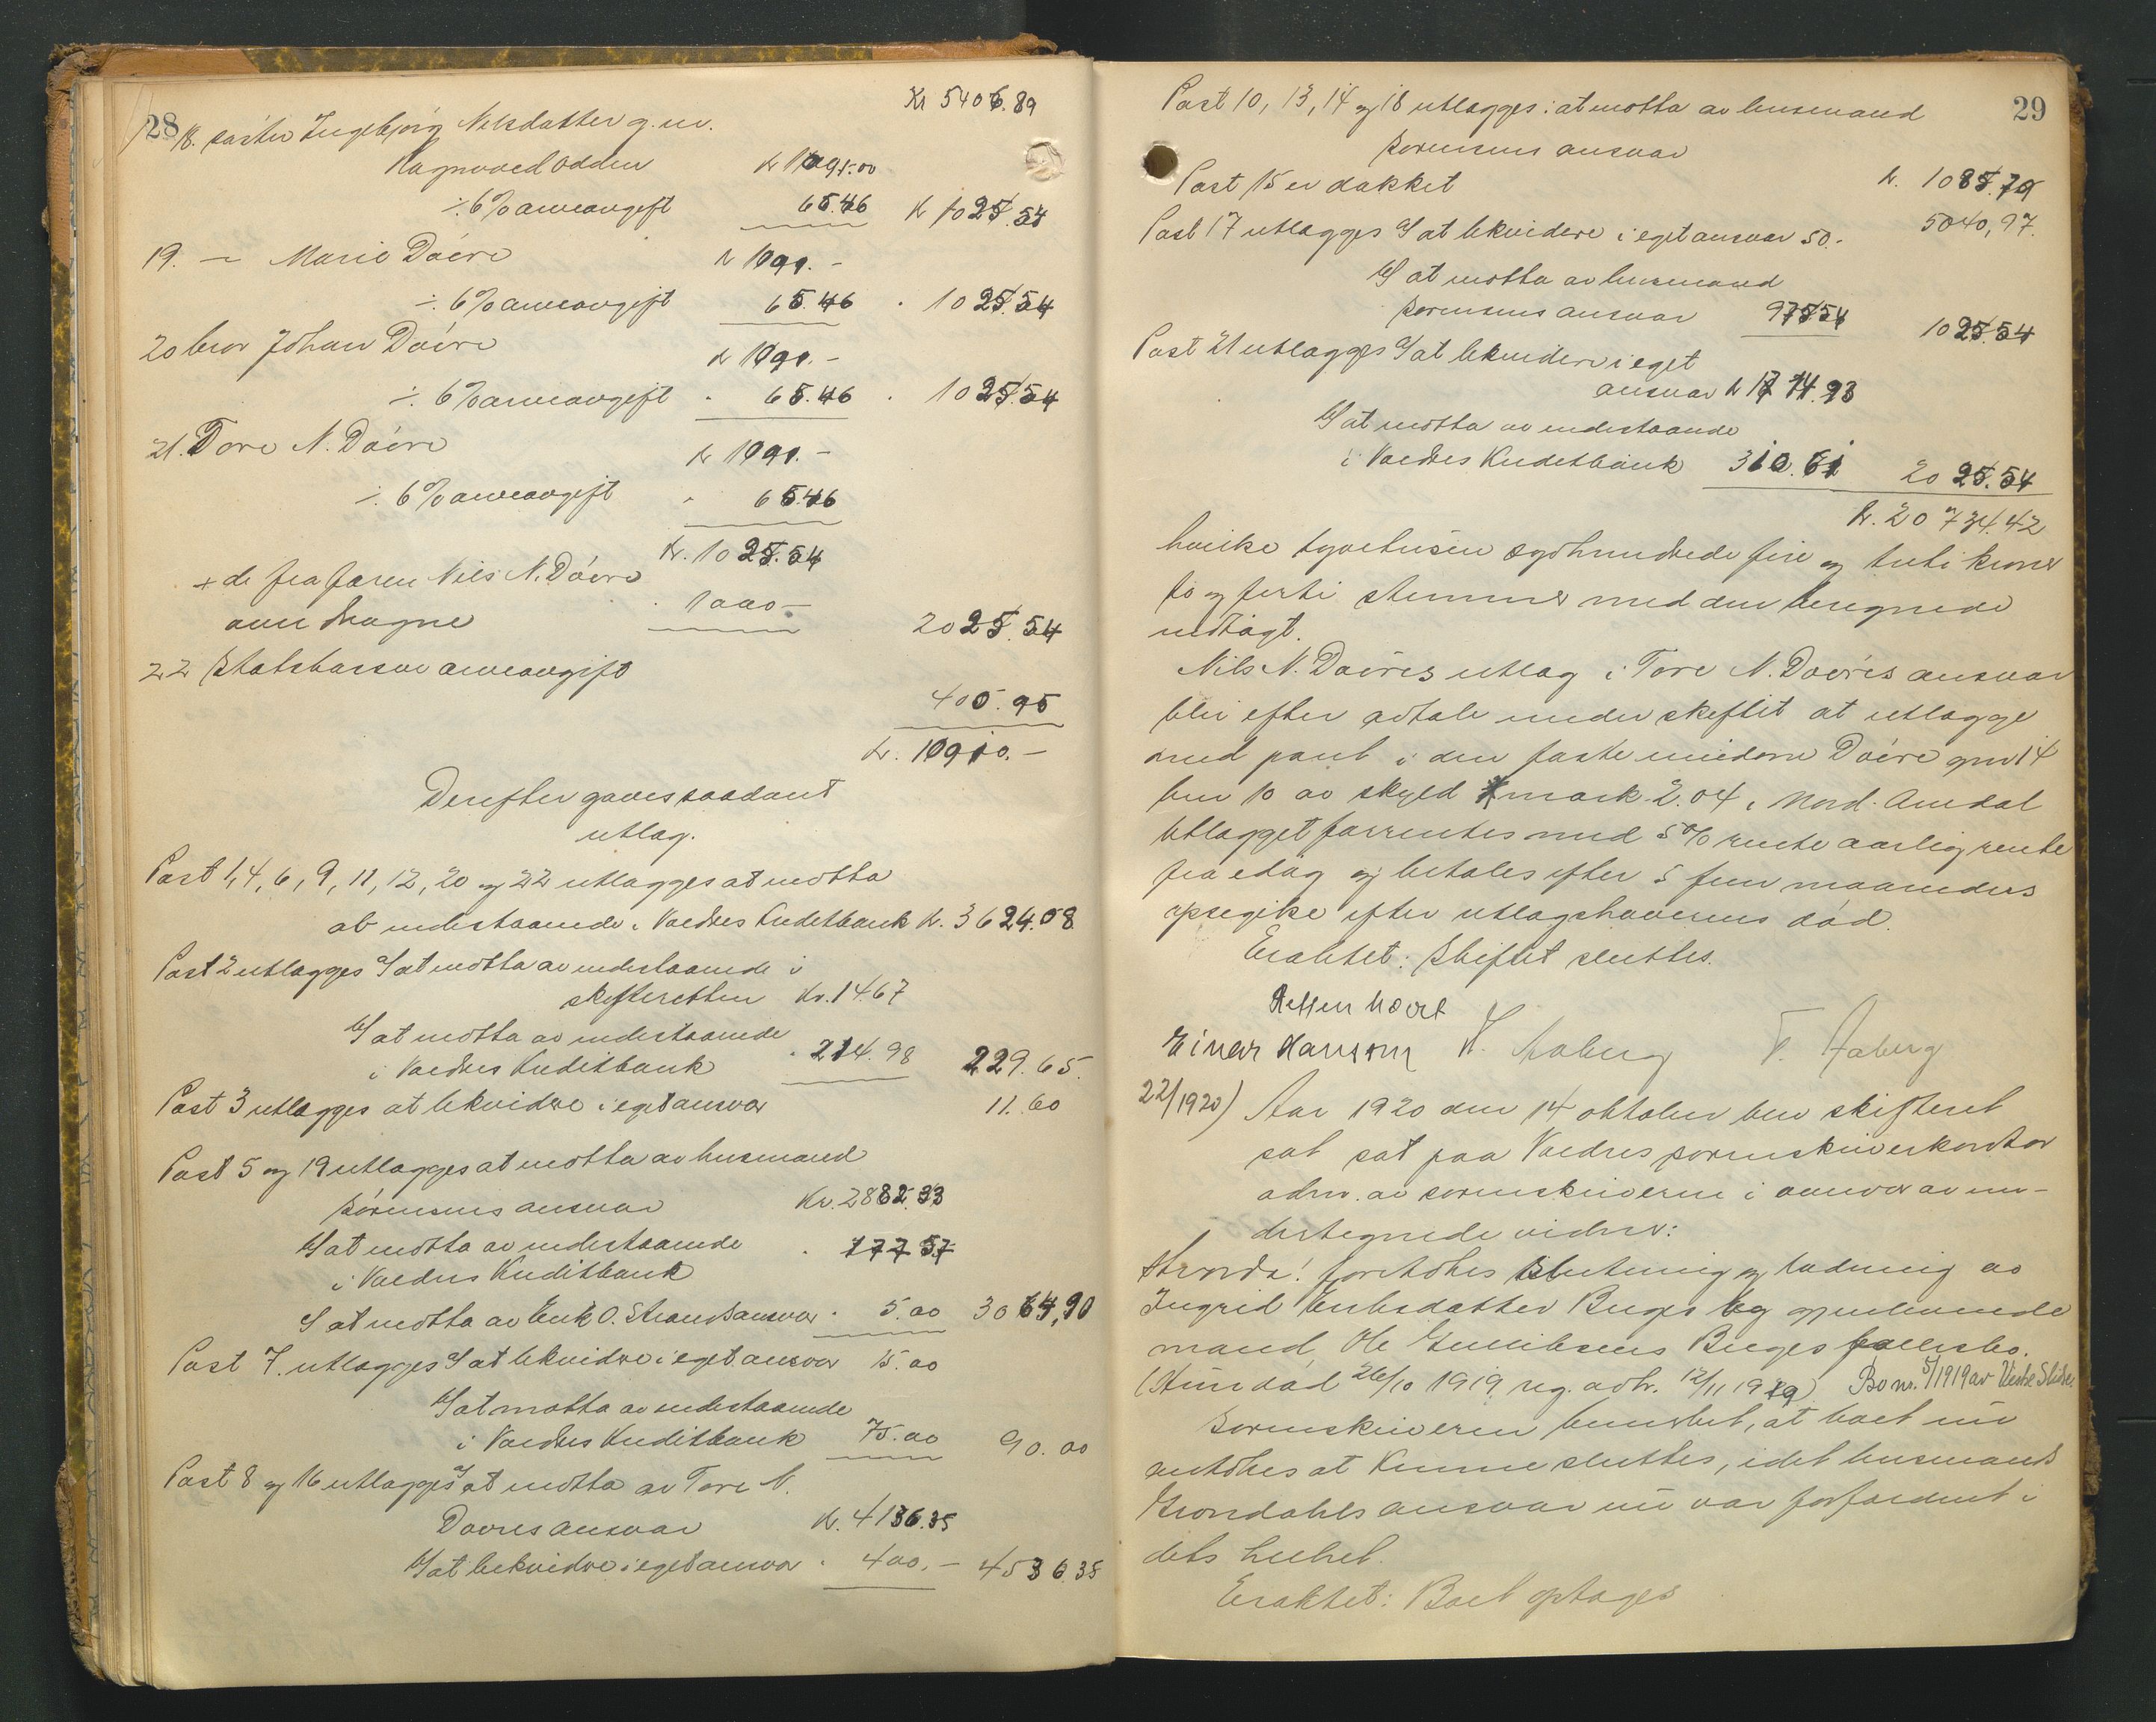 28
Kr 5406.89
18. søster Ingebjørg Nilsdatter g.m.
Ragnvald Odden kr 1091.00
÷ 6% arveavgift 65.46 kr 1025.54
19. — Marie Døvre kr 1091.-
÷ 6% arveavgift 65.46 " 1025.54
20 bror Johan Døvre kr 1091.-
÷ 6% arveavgift " 65.46 " 1025.54
21. Tore N. Døvre kr 1091.-
÷ 6% arveavgift " 65.46
kr. 1025.54
+ de fra faren Nils N. Døvre
1000 — 2025.54
22 Statskassen arveavgift
400.95
kr. 10910.-
Derefter gaves saadant
utlæg.
Post 1, 4, 6, 9, 11, 12, 20 og 22 utlægges at motta
av indestaaende i Valdres Kreditbank kr. 3624.08
Post 2 utlægges a/ at motta av indestaaende i
skifteretten kr. 14.67
b/ at motta av indestaaende
i Valdres Kreditbank " 214.98 229.65.
Post 3 utlægges at likvidere i eget ansvar 11.60
Post 5 og 19 utlægges at motta av lensmand
Sørensens ansvar kr. 2882.33
b/ at motta av indestaaende
i Valdres Kreditbank " 177.57
c/ at motta av Erik O. Strands ansvar " 5.00 3064,90
Post 7. utlægges a/ at likvidere i eget ansvar 15.00
b/ at motta av indestaaende
i Valdres Kreditbank 75.00 90.00
Post 8 og 16 utlægges a/ at motta av Tore N.
Døvres ansvar kr. 4136.35
b/ at likvidere i eget ansvar " 400.- 4536.35
29
Post 10, 13, 14 og 18 utlægges: at motta av lensmand
Sørensens ansvar
Post 15 er dækket kr. 1085.79
Post 17 utlægges a/ at likvidere i eget ansvar 50.- 5040,97.
b/ at motta av lensmand
Sørensens ansvar 975.54 1025.54
Post 21 utlægges a/ at likvidere i eget
ansvar kr 1714.93
b/ at motta av indestaaende
i Valdres Kreditbank 310.61 2025.54
kr. 20734.42
hvilke tyvetusen syvhundrede fire og treti kroner
to og førti stemmer med den beregnede
indtægt.
Nils N. Døvres utlæg i Tore N. Døvres ansvar
blir efter avtale under skiftet at utlægge
med pant i den faste eiendom Døvre gnr 14
bnr 10 av skyld mark 2.04 i Nord-Aurdal
Utlægget forrentes med 5% rente aarlig rente
fra idag og betales efter 5 fem maaneders
opsigelse efter utlægshaverens død.
Eraktet: Skiftet sluttes.
Retten hævet
Einar Hansson K. Aaberg T. Aaberg
22/1920) Aar 1920 den 14 oktober blev skifteret
sat sat paa Valdres sorenskriverkontor
adm. av sorenskriveren i nærvær av un-
dertegnede vidner:
Hvorda! foretokes slutning og lodning av
Ingrid Eriksdatter Buges og gjenlevende
mand, Ole Gulliksens Buges fællesbo.
(Hun død 26/10 1919 reg. avh. 12/11 1919) Bo nr. 5/1919 av Vestre Slidre
Sorenskriveren bemerket, at boet nu
antokes at kunne sluttes, idet lensmand
Grøndahls ansvar nu var forfaldent i
dets helhet.
Eraktet: Boet optages